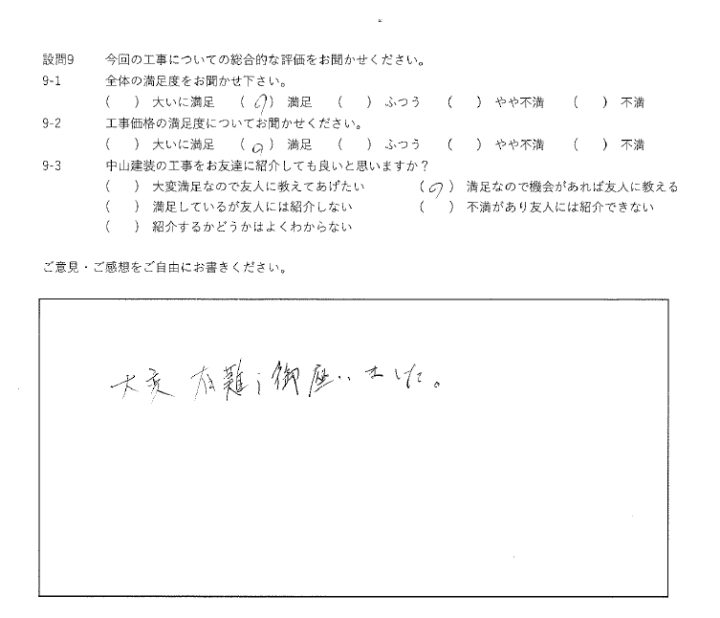 設問9 今回の工事についての総合的な評価をお聞かせください。
9-1 全体の満足度をお聞かせ下さい。
( ) 大いに満足 (○) 満足 ( ) ふつう ( ) やや不満 ( ) 不満
9-2 工事価格の満足度についてお聞かせください。
( ) 大いに満足 (○) 満足 ( ) ふつう ( ) やや不満 ( ) 不満
9-3 中山建装の工事をお友達に紹介しても良いと思いますか？
( ) 大変満足なので友人に教えてあげたい (○) 満足なので機会があれば友人に教える
( ) 満足しているが友人には紹介しない ( ) 不満があり友人には紹介できない
( ) 紹介するかどうかはよくわからない
ご意見・ご感想をご自由にお書きください。
大変有難う御座いました。